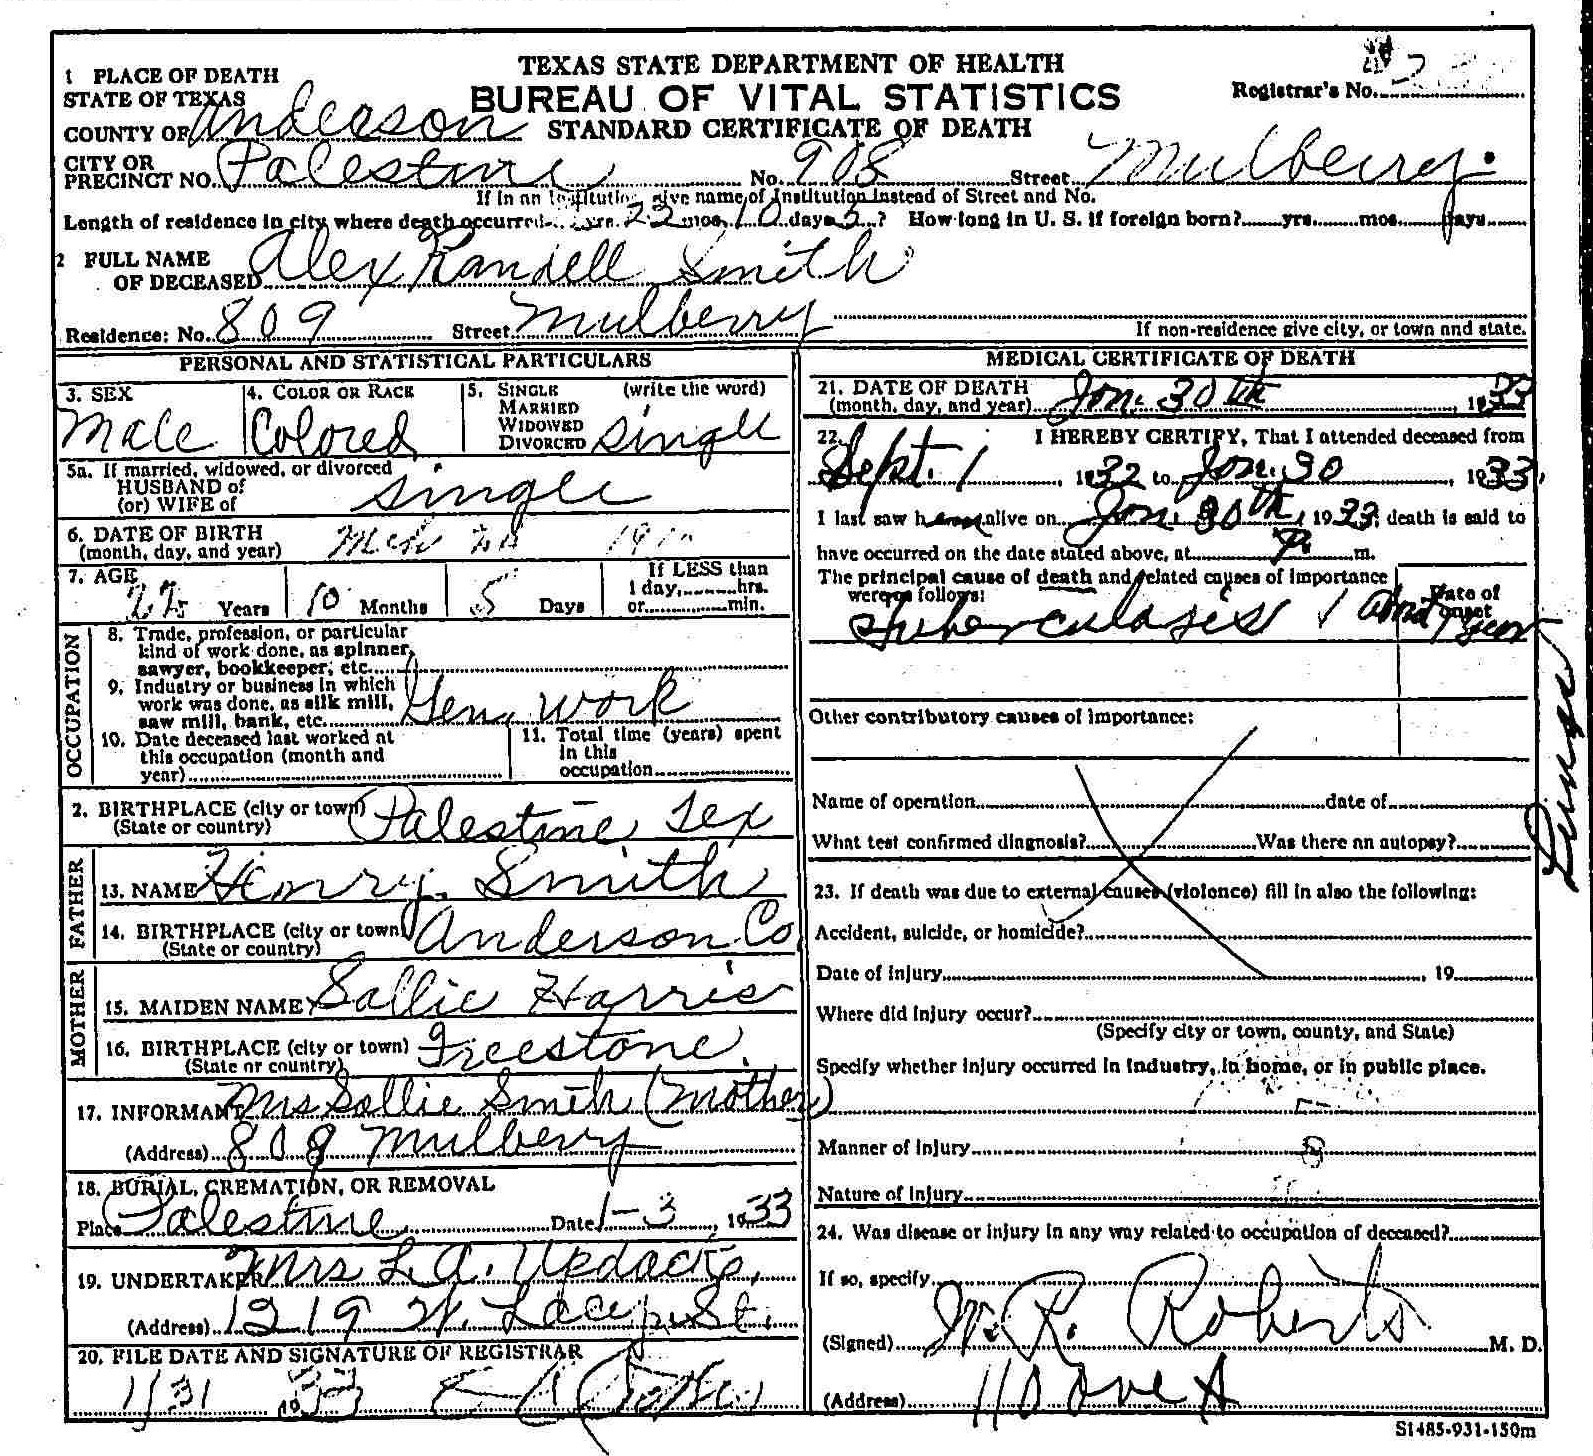 TEXAS STATE DEPARTMENT OF HEALTH
BUREAU OF VITAL STATISTICS
STANDARD CERTIFICATE OF DEATH
Registrar's No.
1 PLACE OF DEATH
STATE OF TEXAS
COUNTY OF Anderson
CITY OR
PRECINCT NO. Palestine No. 908 Street Mulberry
If in an institution give name of Institution instead of Street and No.
Length of residence in city where death occurred yrs. 22 mos. 10 days 5 ? How long in U. S. if foreign born? yrs. mos. days
2 FULL NAME
OF DECEASED Alex Randell Smith
Residence: No. 809 Street Mulberry
If non-residence give city, or town and state.
PERSONAL AND STATISTICAL PARTICULARS
3. SEX 4. COLOR OR RACE 5. SINGLE (write the word)
MARRIED
WIDOWED
DIVORCED
Male Colored Single
5a. If married, widowed, or divorced
HUSBAND of
(or) WIFE of Single
6. DATE OF BIRTH
(month, day, and year)
7. AGE If LESS than
1 day, hrs.
22 Years 10 Months 5 Days or min.
OCCUPATION
8. Trade, profession, or particular
kind of work done, as spinner,
sawyer, bookkeeper, etc.
9. Industry or business in which
work was done, as silk mill,
saw mill, bank, etc. Gen. work
10. Date deceased last worked at
this occupation (month and
year)
11. Total time (years) spent
in this
occupation
2. BIRTHPLACE (city or town) Palestine, Tex
(State or country)
FATHER
13. NAME Henry Smith
14. BIRTHPLACE (city or town) Anderson Co
(State or country)
MOTHER
15. MAIDEN NAME Sallie Harris
16. BIRTHPLACE (city or town) Freestone
(State or country)
17. INFORMANT Mrs Sallie Smith (Mother)
(Address) 808 Mulberry
18. BURIAL, CREMATION, OR REMOVAL
Place Palestine Date 1-3, 1933
19. UNDERTAKER Mrs L. A. Updacts
(Address) 1219 W. Lacy St.
20. FILE DATE AND SIGNATURE OF REGISTRAR
1/31 1933
MEDICAL CERTIFICATE OF DEATH
21. DATE OF DEATH
(month, day, and year) Jan. 30th, 1933
22. I HEREBY CERTIFY, That I attended deceased from
Sept. 1, 1932 to Jan. 30, 1933,
I last saw h alive on Jan. 30th, 1933; death is said to
have occurred on the date stated above, at P. m.
The principal cause of death and related causes of importance
were as follows: Date of
onset
Tuberculosis about 1 year
Lungs
Other contributory causes of importance:
Name of operation date of
What test confirmed diagnosis? Was there an autopsy?
23. If death was due to external causes (violence) fill in also the following:
Accident, suicide, or homicide?
Date of injury , 19
Where did injury occur?
(Specify city or town, county, and State)
Specify whether injury occurred in industry, in home, or in public place.
Manner of injury
Nature of injury
24. Was disease or injury in any way related to occupation of deceased?
If so, specify
(Signed) W. R. Roberts M. D.
(Address) 110 Ave A
S1485-931-150m